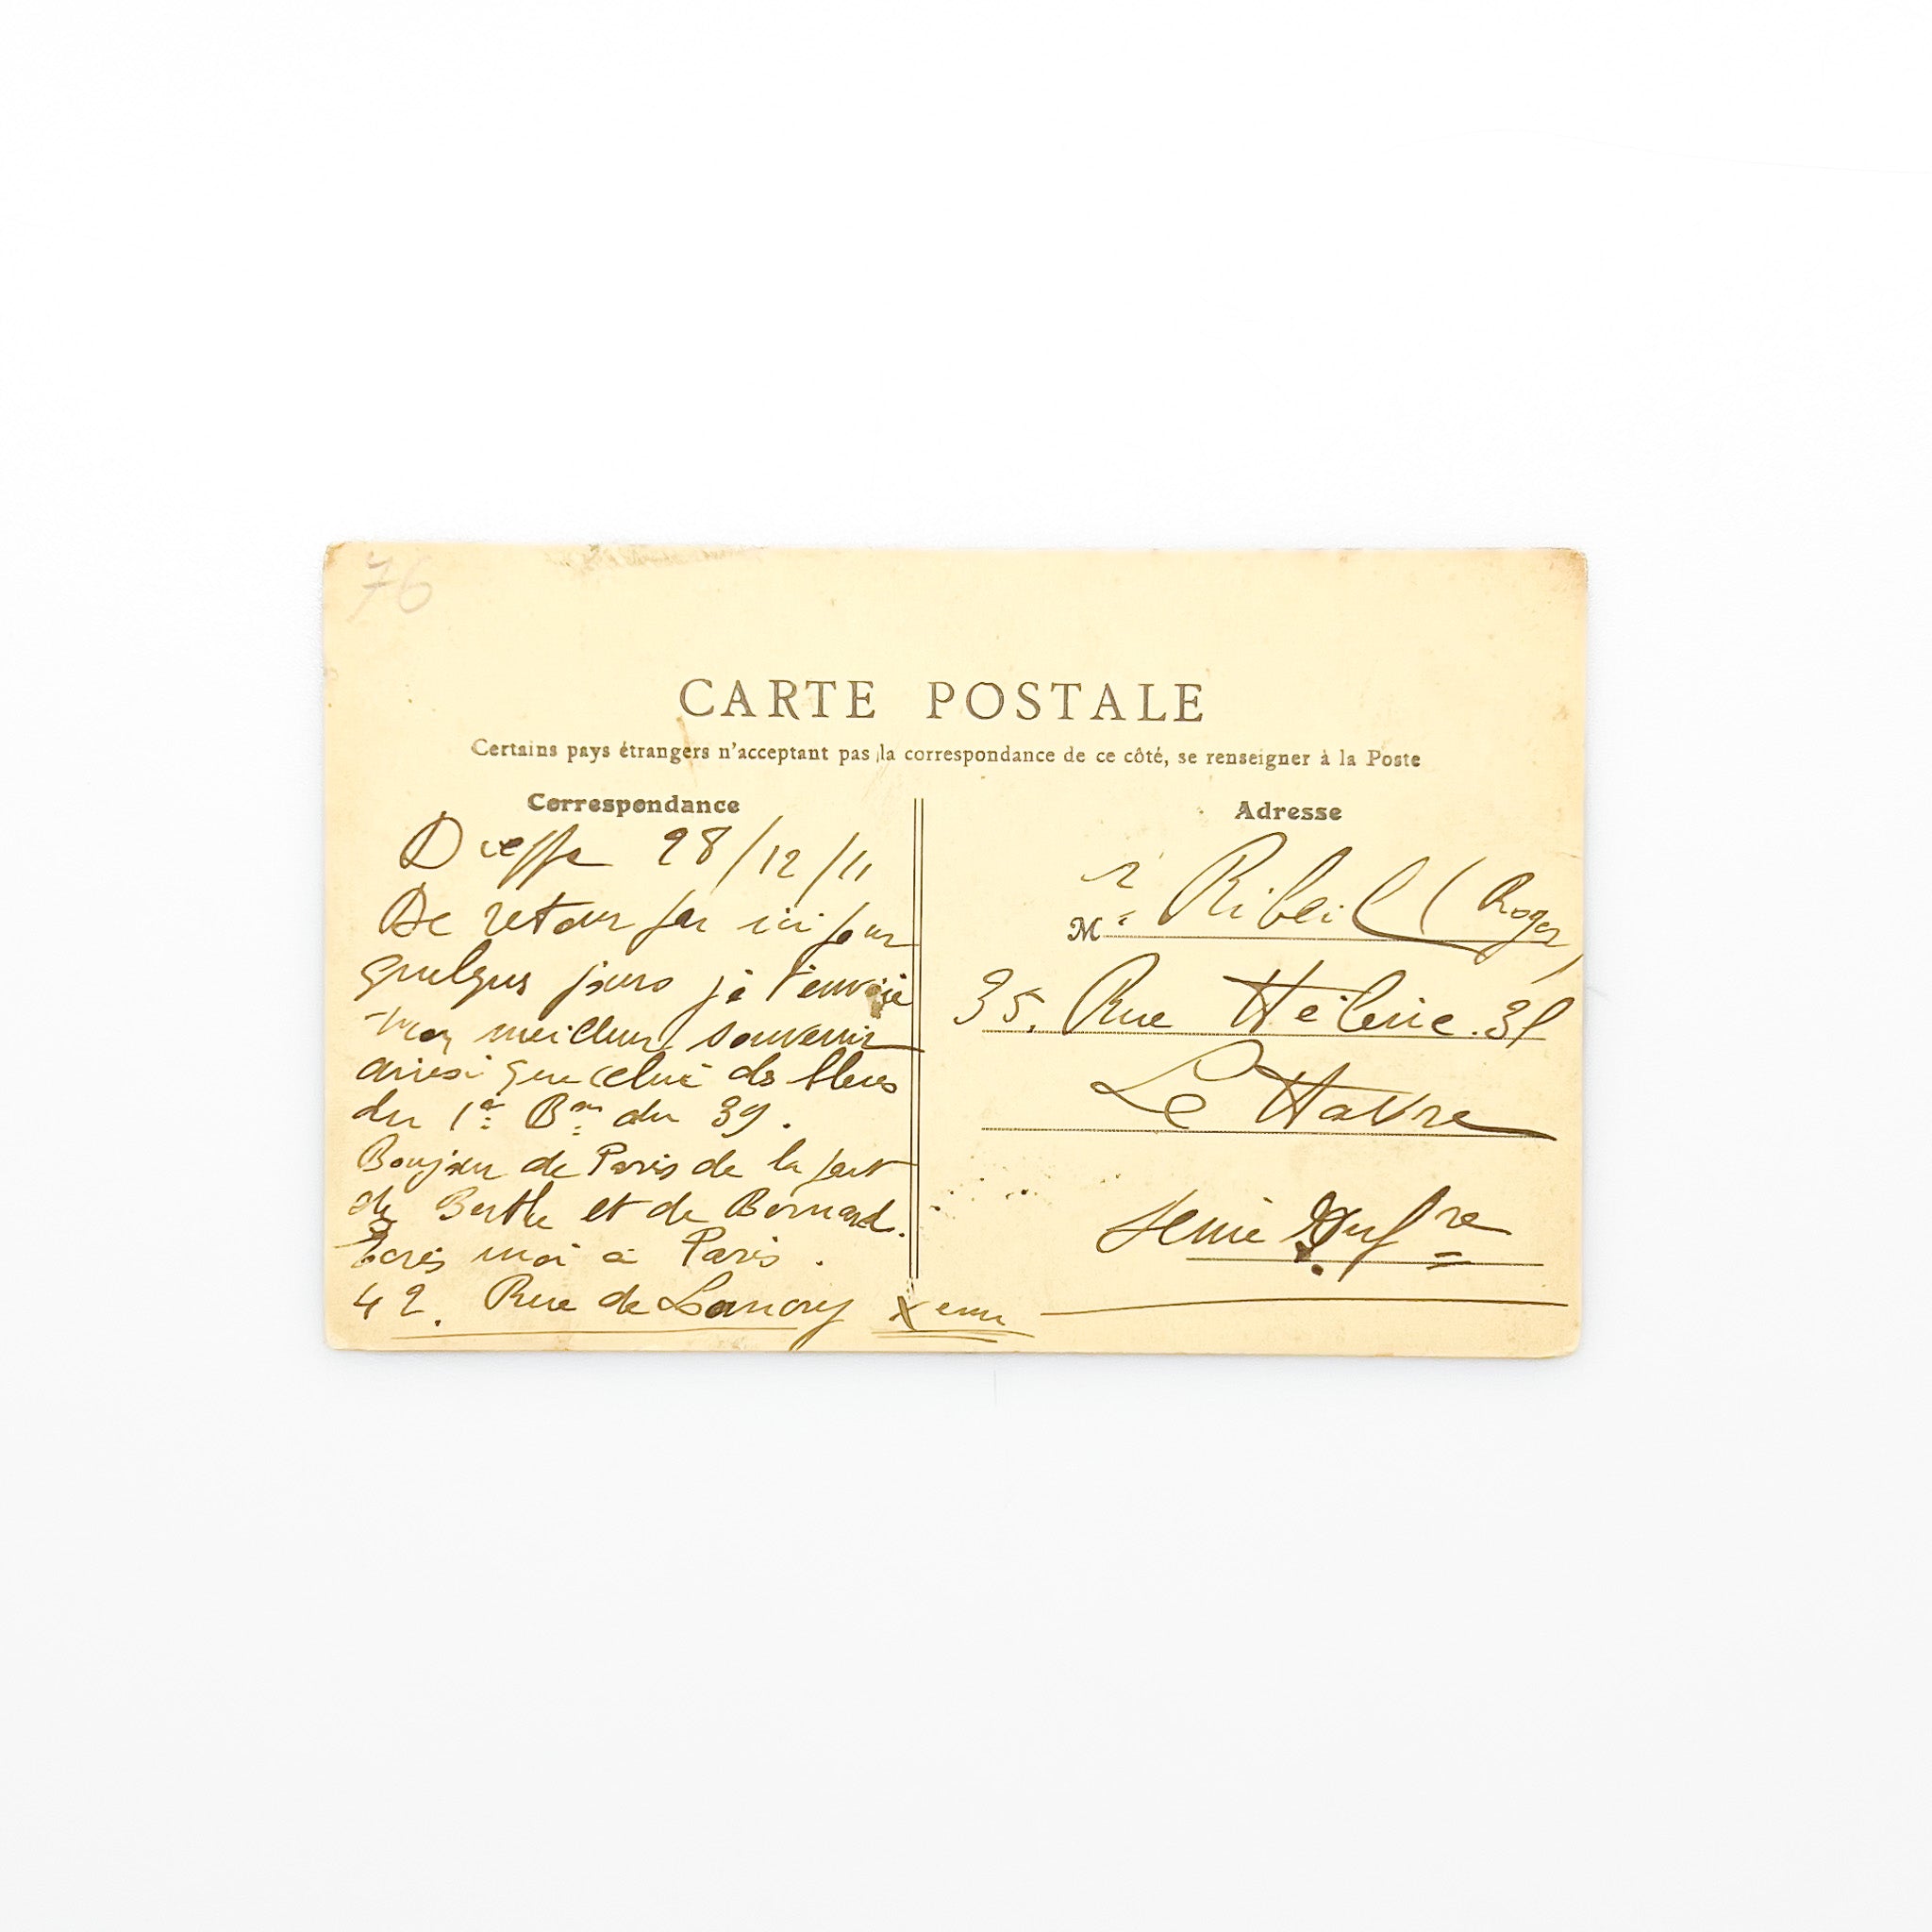 76
CARTE POSTALE
Certains pays étrangers n'acceptant pas la correspondance de ce côté, se renseigner à la Poste
Correspondance
Dieppe 28/12/11
De retour par ici pour
quelques jours je t'envoie
mon meilleur souvenir
ainsi que celui ds bleus
du 1er Bon du 39.
Bonjour de Paris de la part
de Berthe et de Bernard.
Ecris moi à Paris.
42. Rue de Lancry Xeme
Adresse
Mr Ribeil (Roger)
35. Rue Hélène. 35
Le Havre
Seine Infre